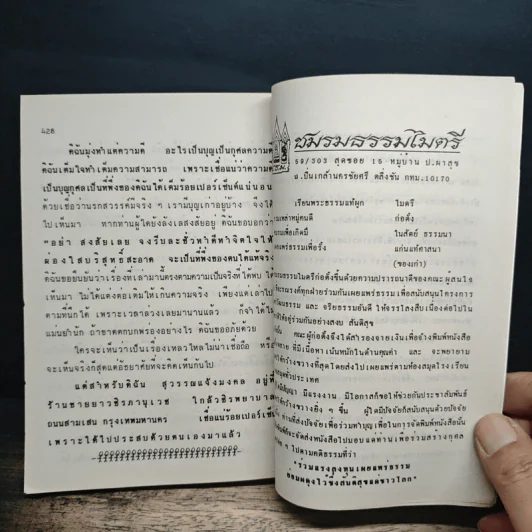 428
ดิฉันมุ่งทำแต่ความดี อะไรเป็นบุญเป็นกุศลความดี
ดิฉันเต็มใจทำเต็มความสามารถ เพราะเชื่อแน่ว่าความดี
เป็นบุญกุศลเป็นที่พึ่งของดิฉันได้เต็มร้อยเปอร์เซ็นต์แน่นอน
ด้วยเชื่อว่านรกสวรรค์มีจริง ๆ เรามีบุญเก่าอยู่บ้าง จึงได้
ไปเห็นมา หากท่านผู้ใดยังลังเลสงสัยอยู่ ดิฉันขอบอกว่า
"อย่า สงสัยเลย จงรีบละชั่วทำดีทำจิตใจให้
ผ่องใสบริสุทธิ์สะอาด จะเป็นที่พึ่งของตนได้แท้จริง
ดิฉันขอยืนยันว่าเรื่องที่เล่ามานี้ตรงตามความเป็นจริงที่ได้พบ ได้
เห็นมา ไม่ได้แต่งต่อเติมให้เกินความจริง เพียงแต่เล่าไป
ตามที่นึกได้ เพราะเวลาล่วงเลยมานานแล้ว ก็จำได้ไม่
แม่นยำนัก ถ้าขาดตกบกพร่องอย่างไร ดิฉันขออภัยด้วย
ใครจะเห็นว่าเป็นเรื่องเหลวไหลไม่น่าเชื่อถือ หรือ
จะเห็นจริงก็สุดแต่อัธยาศัยที่จะคิดเห็นกันไป
แต่สำหรับดิฉัน สุวรรณแจ้งมงคล อยู่ที่
ร้านขายยาวชิรภานุเวช ใกล้วชิรพยาบาล
ถนนสามเสน กรุงเทพมหานคร เชื่อแน่ร้อยเปอร์เซ็นต์
เพราะได้ไปประสบด้วยตนเองมาแล้ว
ชมรมธรรมไมตรี
59/303 สุดซอย 15 หมู่บ้าน ป.ผาสุข
ถ.ปิ่นเกล้านครชัยศรี ตลิ่งชัน กทม.10170
เรียนพระธรรมแท้ผูก ไมตรี
เหล่าหมู่คนดี ก่อตั้ง
เพื่อเกิดมี ในสัตย์ ธรรมนา
แพร่ธรรมเพื่อรั้ง แก่นแท้ศาสนา
(ของเก่า)
ธรรมไมตรีก่อตั้งขึ้นด้วยความปรารถนาดีของคณะ ผู้สนใจ
ณรงค์ทุกฝ่ายร่วมกันเผยแพร่ธรรม เพื่อสนับสนุนโครงการ
วัฒนธรรม และ จริยธรรมอันดี ให้จรรโลงสืบเนื่องต่อไปใน
ให้อยู่ร่วมกันอย่างสงบ สันติสุข
คณะผู้ก่อตั้งจึงได้สำรองจ่ายเงินเพื่อจ้างพิมพ์หนังสือ
ที่มีเนื้อหา เน้นหนักในด้านคุณค่า และ จะพยายาม
กว้างขวางที่สุดโดยส่งไปเผยแพร่ตามห้องสมุดโรงเรียน
ทั่วประเทศ
มีปัญญา มีแรงงาน มีโอกาสก็ขอให้ช่วยกันประชาสัมพันธ์
กว้างขวางยิ่ง ๆ ขึ้น ผู้ใดมีปัจจัยก็สนับสนุนด้วยปัจจัย
ท่านที่ส่งปัจจัย เพื่อร่วมทำบุญ เพื่อในการจัดพิมพ์หนังสือนั้น
จะจัดส่งหนังสือไปมอบแด่ท่าน เพื่อร่วมสร้างกุศล
ๆ ไปตามคติธรรมที่ว่า
"ร่วมแรงลงทุนเผยแพร่ธรรม
ผดุงไว้ซึ่งสันติสุขแด่ชาวโลก"